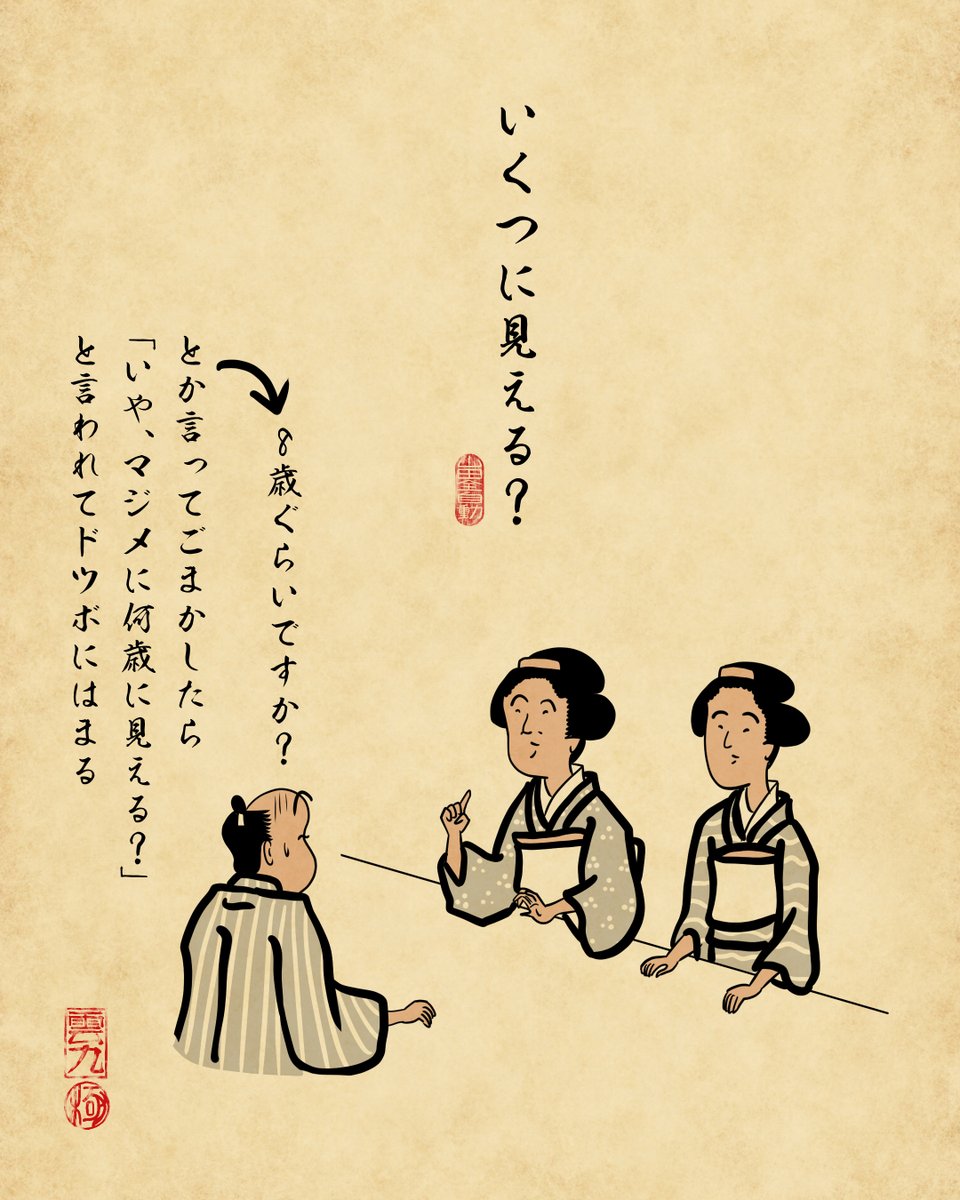 いくつに見える?
8歳ぐらいですか?
とか言ってごまかしたら
「いや、マジメに何歳に見える?」
と言われてドツボにはまる